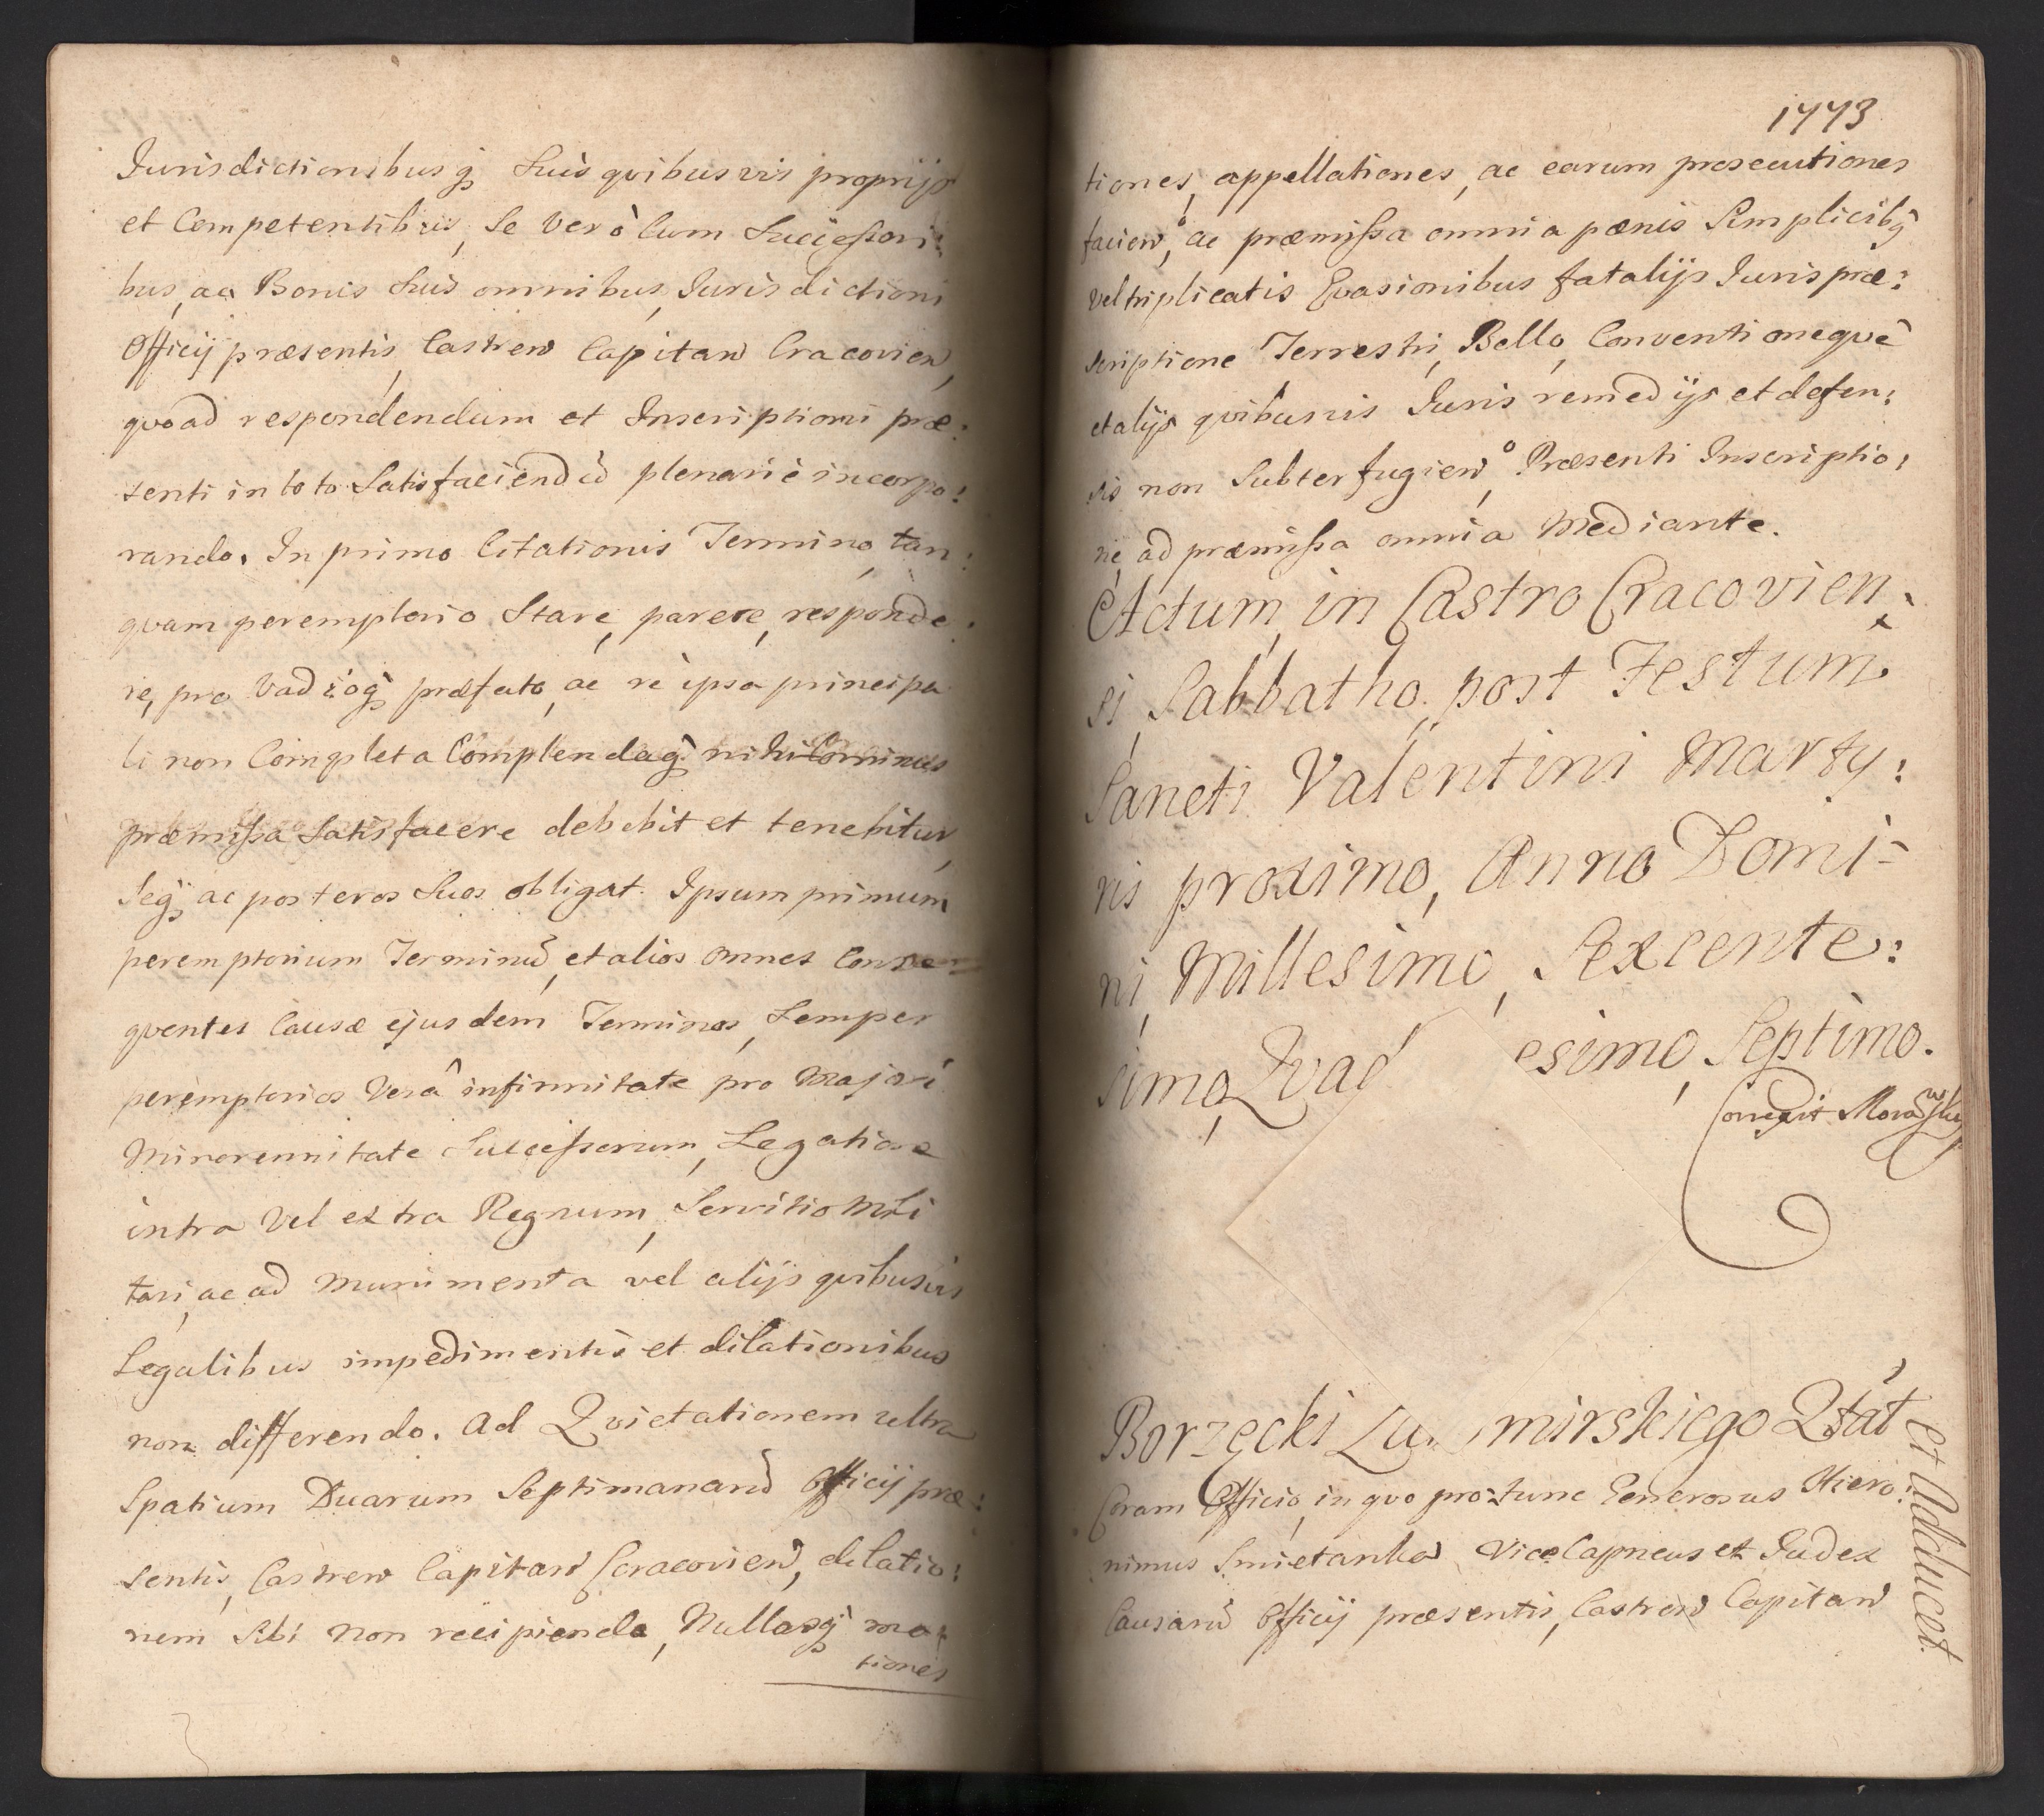 Jurisdictionibusq̨ Suis qvibusvis proprijs
et Competentibus, Se verò Cum Successori:
bus, ac Bonis Suis omnibus, Jurisdictioni
Officij præsentis, Castren Capitan Cracovien,
qvoad respondendum et Inscriptioni præ:
senti in toto Satisfaciendũ plenariè incorpo:
rando. In primo Citationis Termino, tan:
qvam peremptorio Stare, parere, responde:
re, pro Vadioq̨ præfato, ac rè ipsa principa
li non Completa Complendaq̨ nihilominus
præmissa Satisfacere debebit et tenebitur,
Seq̨ ac posteros Suos obligat. Ipsum primum
peremptorium Terminũ, et alios omnes Conse
qventes Causæ ejusdem Terminos, Semper
peremptorios Verâ infirmitate pro Majori
Minorennitate Successorum, Legatione
intra Vel extra Regnum, Servitio Mili
tari, ac ad Munimenta vel alijs qvibusvis
Legalibus impedimentis et dilationibus
non differendo. Ad Qvietationem ultra
Spatium Duarum Septimanarũ Officij præ:
sentis, Castren Capitan Cracovien, dilatio:
nem Sibi non recipiendo, Nullasq̨ mo:
tiones
1773
tiones, appellationes, ac earum prosecutiones
faciendo, ac præmissa omnia pænis Simplicibq̨
vel triplicatis Evasionibus fatalijs Juris præ:
scriptione Terrestri, Bello, Conventioneqvè
et alijs qvibusvis Juris remedijs et defen:
sis non Subterfugien°, Præsenti Inscriptio:
ne, ad præmissa omnia Mediante.
Actum, in Castro Cracovien:
si, Sabbatho post Festum
Sancti Valentini Marty:
ris proximo, Anno Domi=
ni, Millesimo, Sexcente:
simo, Qvad esimo, Septimo.
Correxit
Borzęcki mirskiego Qtat
et Adducet.
Coram Officio, in qvo pro tunc Generosus Hiero:
nimus Smietanka ViceCapneus et Judex
Causarũ Officij præsentis, Castren Capitan